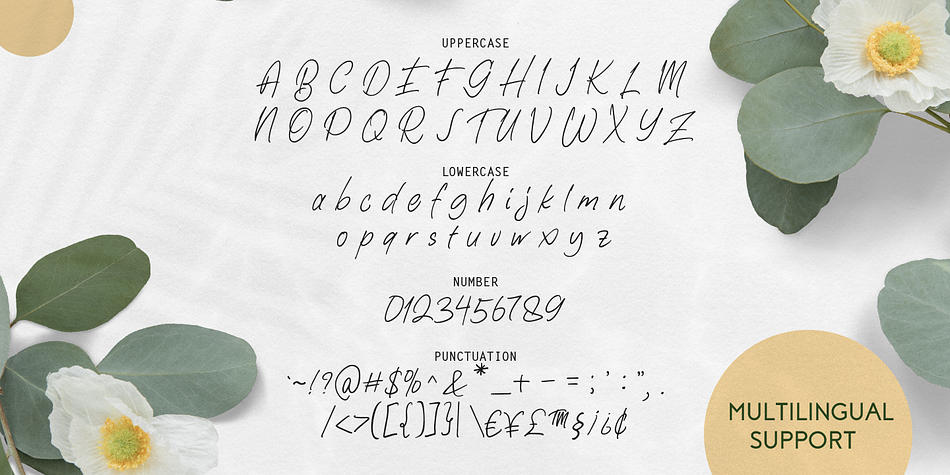 UPPERCASE
A B C D E F G H I J K L M
N O P Q R S T U V W X Y Z
LOWERCASE
a b c d e f g h i j k l m n
o p q r s t u v w x y z
NUMBER
0123456789
PUNCTUATION
`~!?@#$%^&*_+-=;':",.
/<>([{)]}|\€¥£™§¡¿¢
MULTILINGUAL
SUPPORT